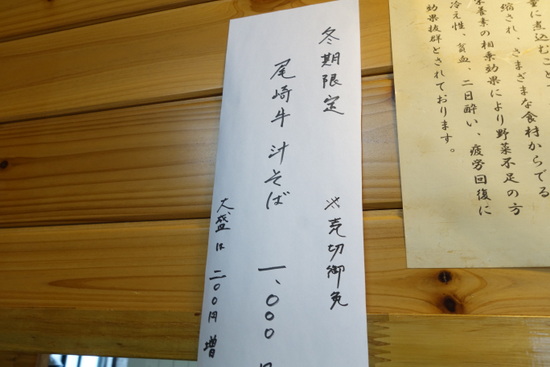 量に煮込むこと
縮され、さまざまな食材からでる
栄養素の相乗効果により野菜不足の方
冷え性、貧血、二日酔い、疲労回復に
効果抜群とされております。
冬期限定 ※売切御免
尾崎牛汁そば 一、〇〇〇
大盛は二〇〇円増